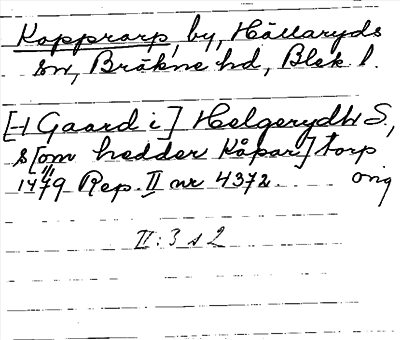 Kopprarp, by, Hällaryds
sn, Bräkne hd, Blek l.
[-1 Gaard i] Helgerydh S.,
s[om hedder Kåpar]torp
1479 Rep. II nr 4372. orig
II:3 s 2